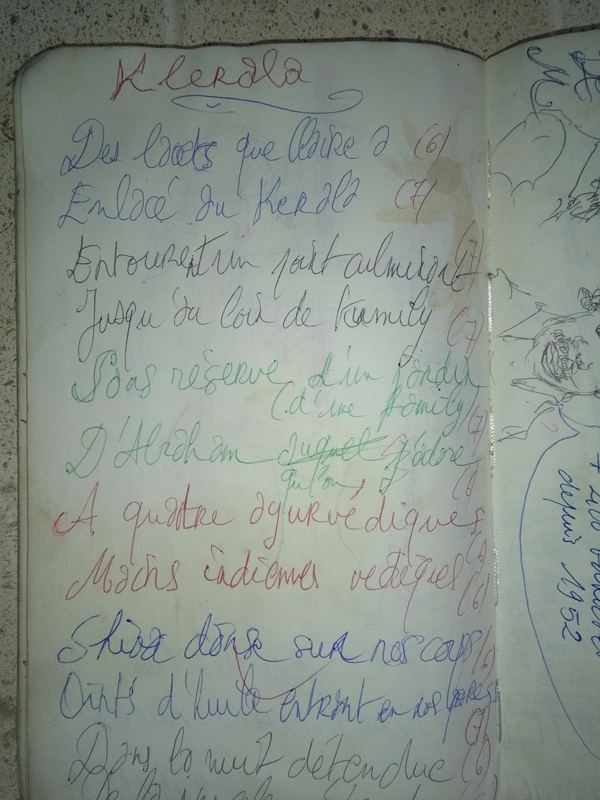 Klerala
Des lacets que Claire a (6)
Enlacé au Kerala (7)
Entourent un point culminant (7)
Jusqu'au loin de Kumily (7)
Sous réserve d'un jardin
(d'une family) (7)
D'Abraham auquel j'adore
qu'on,
A quatre ayurvédiques
Mains indiennes vediques (6)
Shiva danse sur nos corps (6)
Oints d'huile entrant en nos pores (7)
Dans la nuit détendue (6)
+ 200
depuis 1952